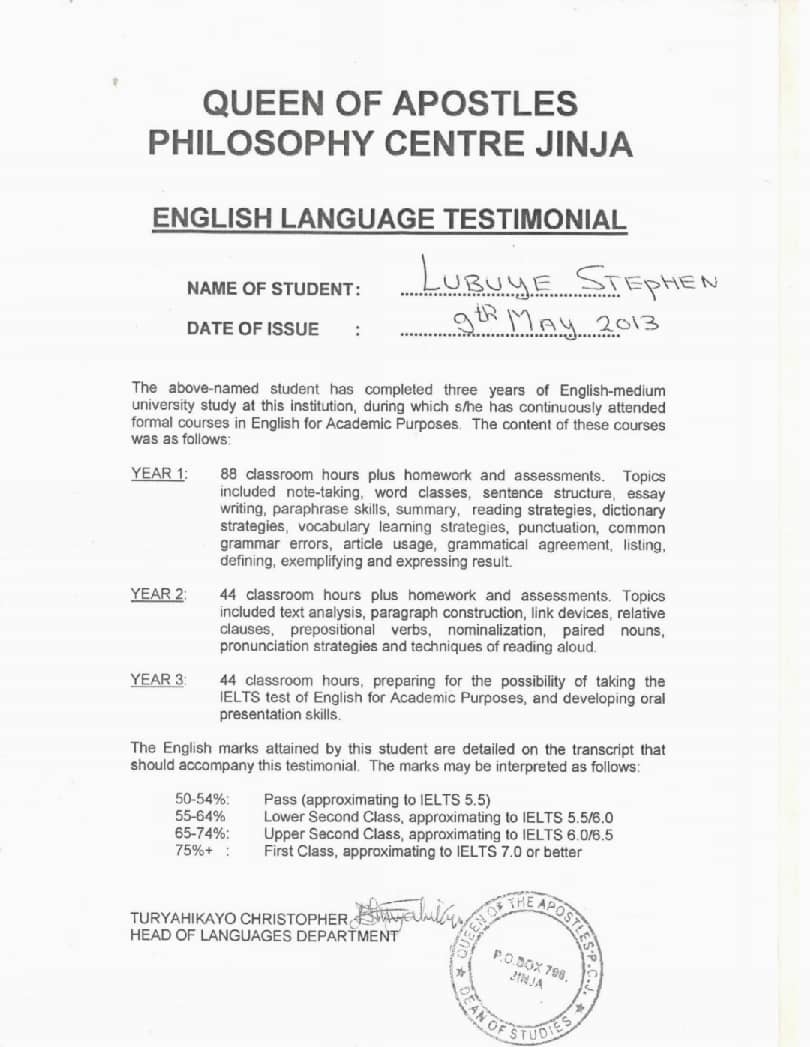 QUEEN OF APOSTLES
PHILOSOPHY CENTRE JINJA
ENGLISH LANGUAGE TESTIMONIAL
NAME OF STUDENT: LUBUYE STEPHEN
DATE OF ISSUE : 9th MAY 2013
The above-named student has completed three years of English-medium
university study at this institution, during which s/he has continuously attended
formal courses in English for Academic Purposes. The content of these courses
was as follows:
YEAR 1: 88 classroom hours plus homework and assessments. Topics
included note-taking, word classes, sentence structure, essay
writing, paraphrase skills, summary, reading strategies, dictionary
strategies, vocabulary learning strategies, punctuation, common
grammar errors, article usage, grammatical agreement, listing,
defining, exemplifying and expressing result.
YEAR 2: 44 classroom hours plus homework and assessments. Topics
included text analysis, paragraph construction, link devices, relative
clauses, prepositional verbs, nominalization, paired nouns,
pronunciation strategies and techniques of reading aloud.
YEAR 3: 44 classroom hours, preparing for the possibility of taking the
IELTS test of English for Academic Purposes, and developing oral
presentation skills.
The English marks attained by this student are detailed on the transcript that
should accompany this testimonial. The marks may be interpreted as follows:
50-54%: Pass (approximating to IELTS 5.5)
55-64% Lower Second Class, approximating to IELTS 5.5/6.0
65-74%: Upper Second Class, approximating to IELTS 6.0/6.5
75%+ : First Class, approximating to IELTS 7.0 or better
TURYAHIKAYO CHRISTOPHER
HEAD OF LANGUAGES DEPARTMENT
QUEEN OF THE APOSTLES-P.C.J.
P.O.BOX 796,
JINJA
★ DEAN OF STUDIES ★